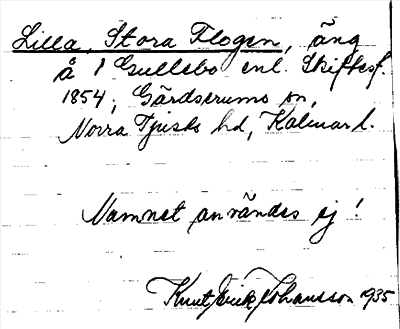 Lilla, Stora Flogen, äng
å 1 Gullebo enl. Skiftesf.
1854, Gärdserums sn,
Norra Tjusts hd, Kalmar l.
Namnet användes ej!
Knut Erik Johansson 1935